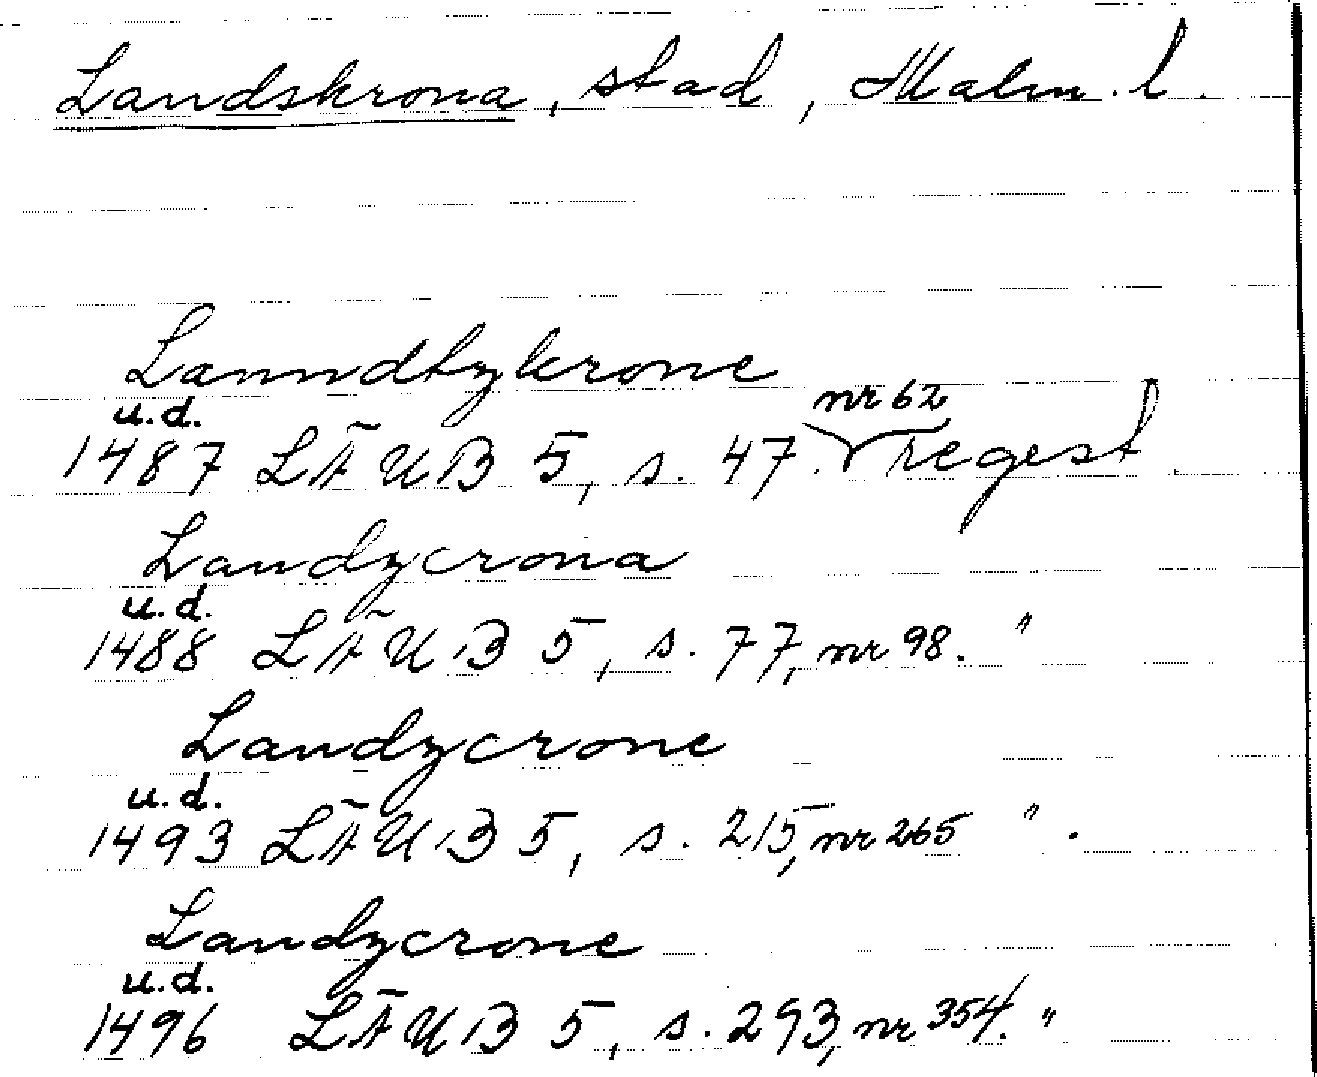 Landskrona, stad, Malm. l.
Lanndtzkrone
u.d. nr 62
1487 LÄUB 5, s. 47. regest.
Landzcrona
u.d.
1488 LÄUB 5, s. 77, nr 98. "
Landzcrone
u.d.
1493 LÄUB 5, s. 215, nr 265 ".
Landzcrone
u.d.
1496 LÄUB 5, s. 293, nr 354. "